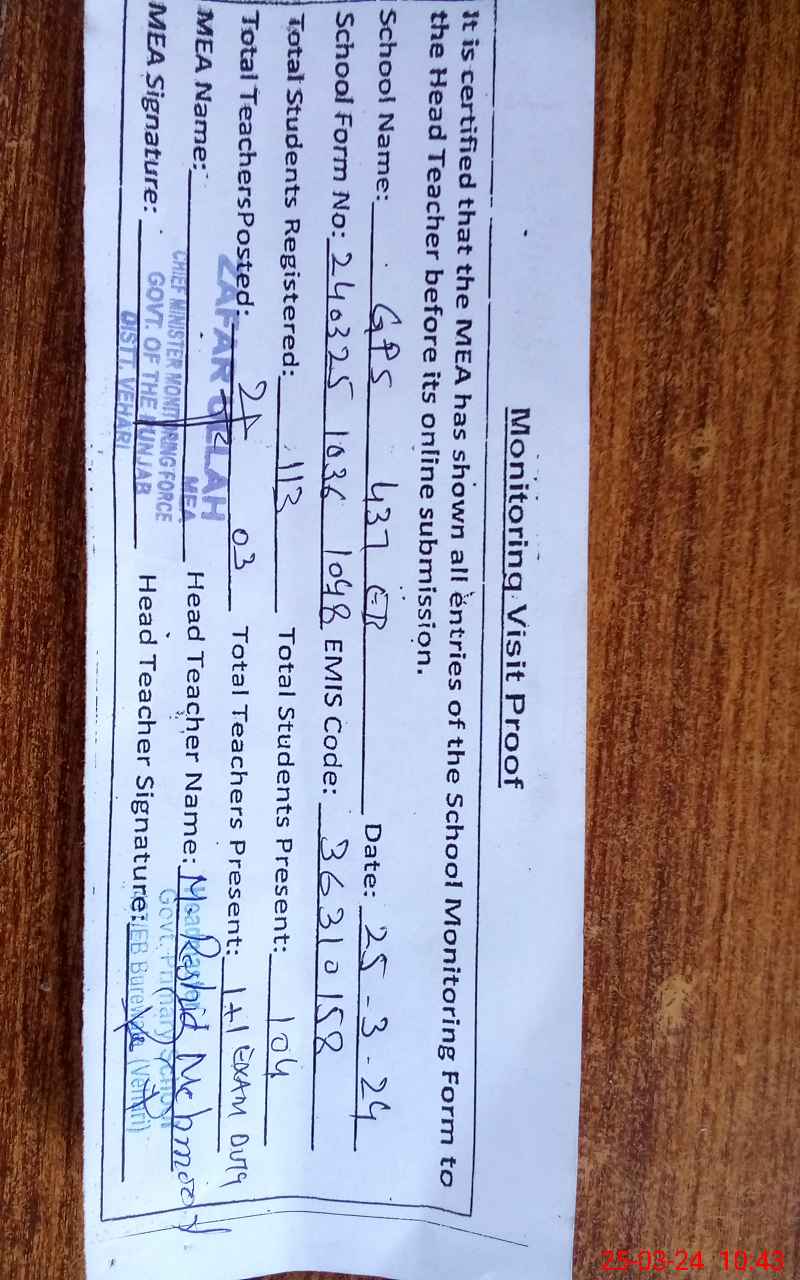 Monitoring Visit Proof
It is certified that the MEA has shown all entries of the School Monitoring Form to
the Head Teacher before its online submission.
School Name: GPS 437 EB Date: 25-3-24
School Form No: 240325 1036 1048 EMIS Code: 36310158
Total Students Registered: 113 Total Students Present: 104
Total TeachersPosted: 03 Total Teachers Present: 1+1 EXAM DUTY
MEA Name: ZAFAR ULLAH Head Teacher Name: M Rashid Mehmood
MEA
CHIEF MINISTER MONITORING FORCE
GOVT. OF THE PUNJAB
DISTT. VEHARI
Govt. Primary School
EB Burewala (Vehari)
MEA Signature: Head Teacher Signature:
25-03-24 10:43